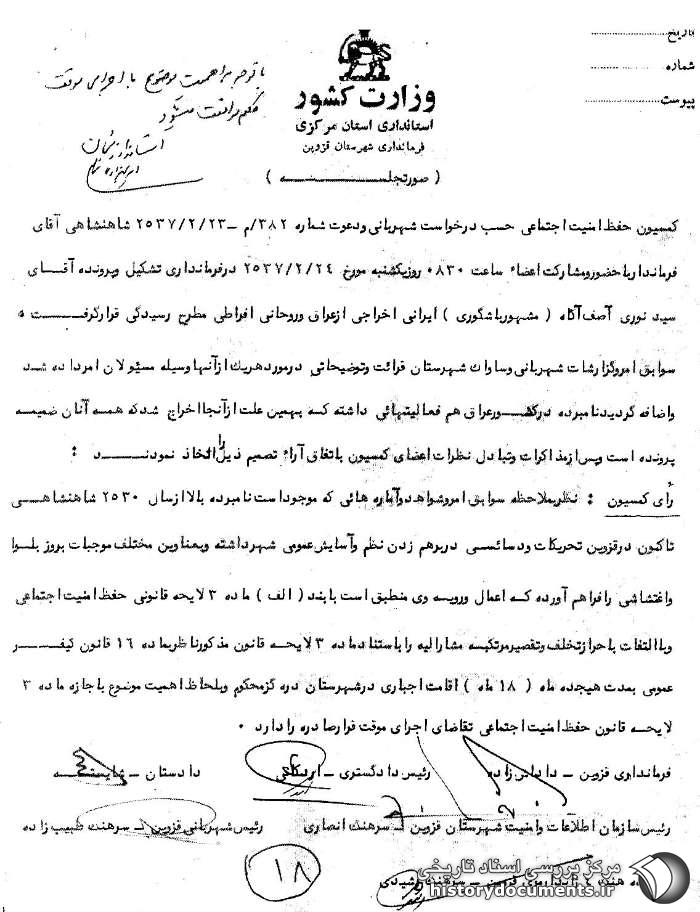 تاریخ
شماره
پیوست
وزارت کشور
استانداری استان مرکزی
فرمانداری شهرستان قزوین
با توجه به اهمیت موضوع با اجرای موقت
حکم موافقت میشود
( صورتجلسه )
کمسیون حفظ امنیت اجتماعی حسب درخواست شهربانی ودعوت شماره ۳۸۲/م -۲۵۳۷/۲/۲۳ شاهنشاهی آقای
فرماندار باحضور ومشارکت اعضاء ساعت ۰۸۳۰ روزیکشنبه مورخ ۲۵۳۷/۲/۲۴ درفرمانداری تشکیل وپرونده آقای
سید نوری آصف آگاه ( مشهورباشکوری ) ایرانی اخراجی ازعراق وروحانی افراطی مطرح رسیدگی قرارگرفت ه
سوابق امروگزارشات شهربانی وساواک شهرستان قرائت وتوضیحاتی درموردهریک ازآنهاوسیله مسئولان امرداده شد
واضافه گردیدنامبرده درکشورعراق هم فعالیتهائی داشته که بهمین علت ازآنجااخراج شدکه همه آنان ضمیمه
پرونده است وپس ازمذاکرات وتبادل نظرات اعضای کمسیون باتفاق آراء تصمیم ذیل رااتخاذ نمودند :
رأی کمسیون : نظربملاحظه سوابق امروشواهدوآماره هائی که موجوداست نامبرده بالاازسال ۲۵۳۰ شاهنشاهی
تاکنون درقزوین تحریکات ودسائسی دربرهم زدن نظم وآسایش عمومی شهرداشته وبعناوین مختلف موجبات بروز بلوا
واغتشاشی رافراهم آورده که اعمال ورویسه وی منطبق است بابند ( الف ) ماده ۳ لایحه قانونی حفظ امنیت اجتماعی
وباالتفات باحرازتخلف وتقصیرمرتکبسه مشارالیه راباستناد ماده ۳ لایحه قانون مذکورناظربماده ۱۶ قانون کیفر
عمومی بمدت هیجده ماه ( ۱۸ ماه ) اقامت اجباری درشهرستان دره گزمحکوم وبلحاظ اهمیت موضوع باجازه ماده ۳
لایحه قانون حفظ امنیت اجتماعی تقاضای اجرای موقت قرارصادره رادارد ۰
فرمانداری قزوین - داداش زاده رئیس دادگستری - اردکانی دادستان - شایسته
رئیس سازمان اطلاعات وامنیت شهرستان قزوین - سرهنگ انصاری رئیس شهربانی قزوین - سرهنگ طبیب زاده
قزوین - سرهنگ رشیدی
۱۸
مرکز بررسی اسناد تاریخی
historydocuments.ir